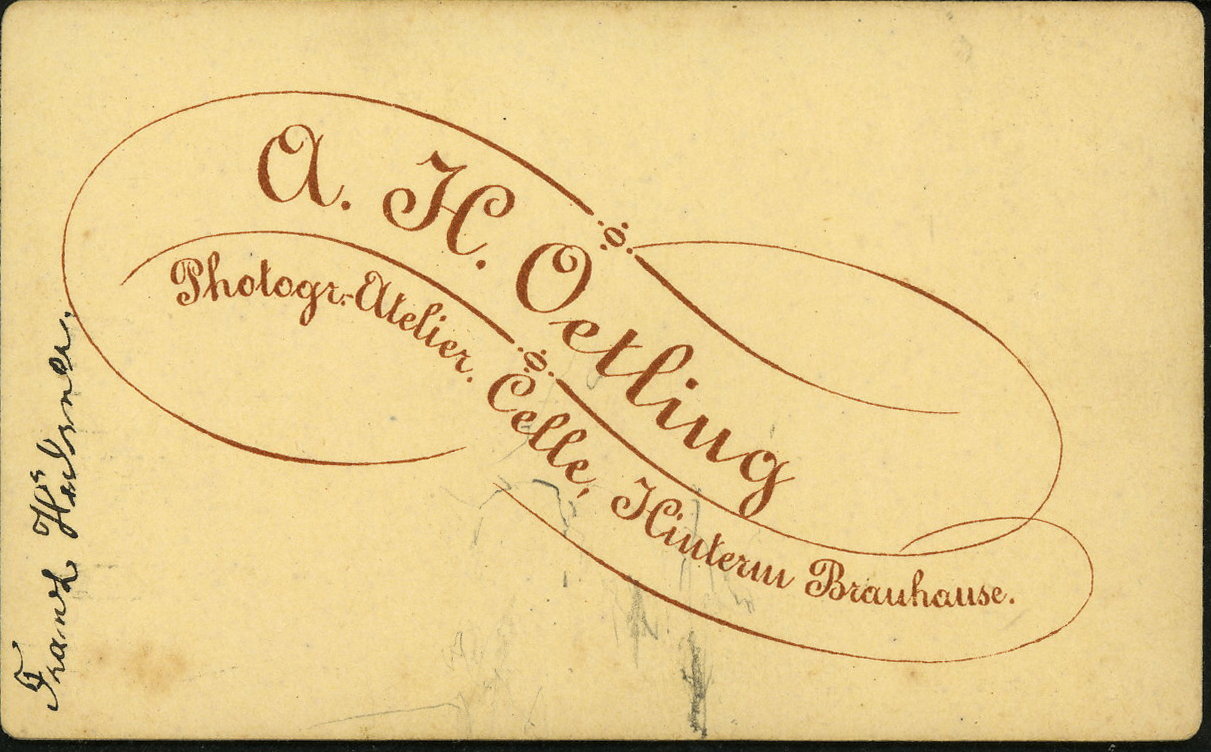 A. H. Oetling
Photogr.-Atelier. Celle, Hinterm Brauhause.
Frank